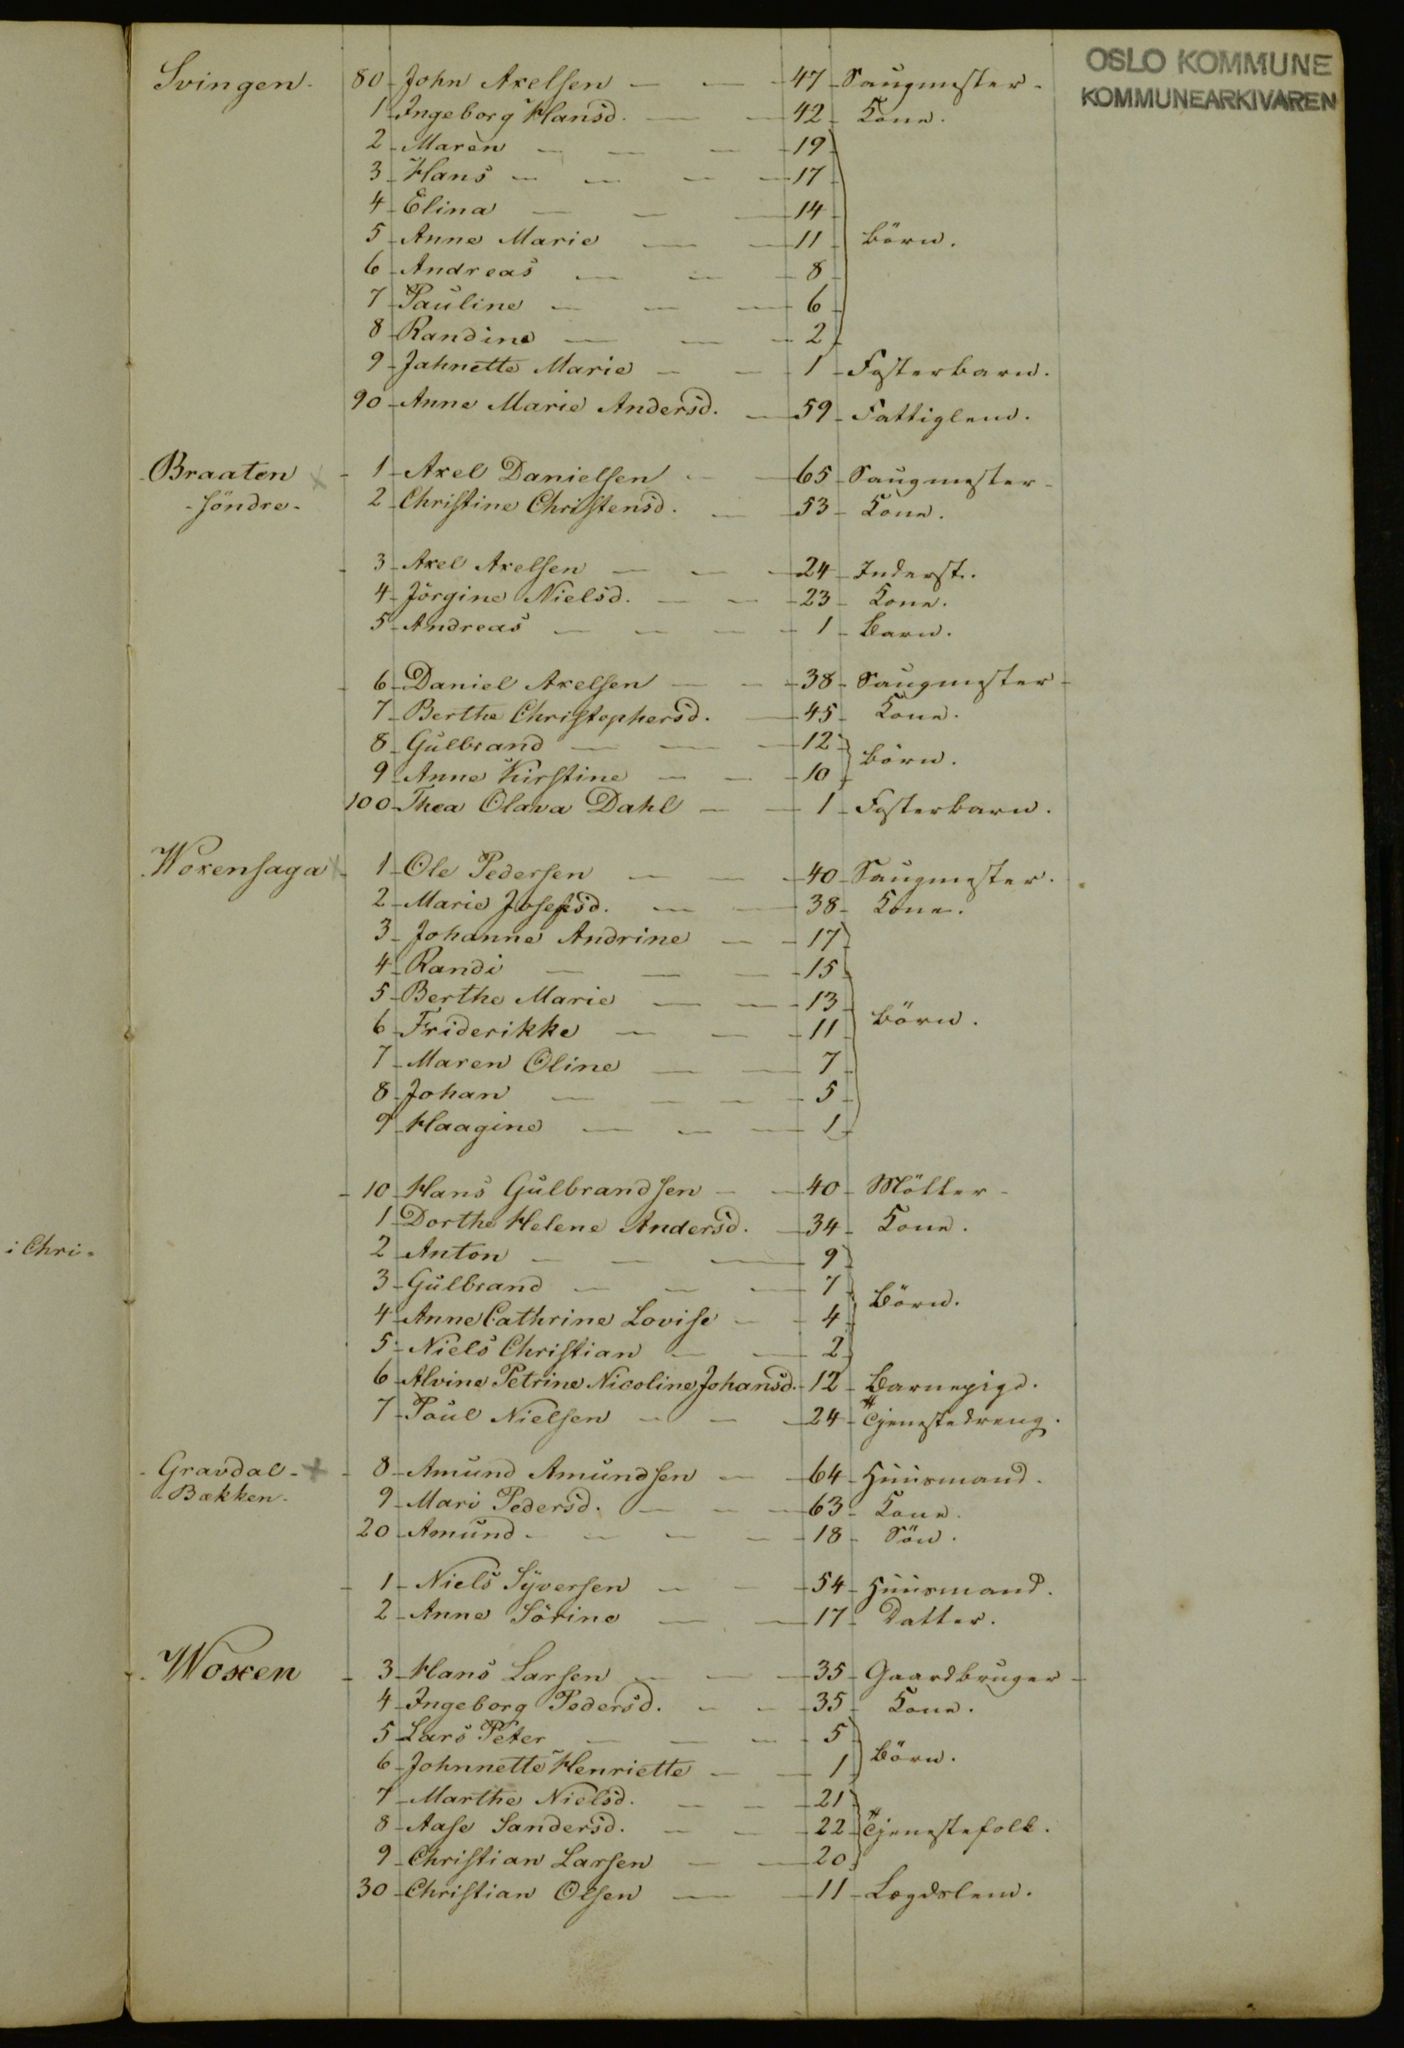 OSLO KOMMUNE
KOMMUNEARKIVAREN
Svingen. 80 John Axelsen 47 Saugmester.
1 Ingeborg Hansd. 42 Kone.
2 Maren 19
3 Hans 17
4 Elina 14
5 Anne Marie 11 Börn.
6 Andreas 8
7 Pauline 6
8 Randine 2
9 Jahnette Marie 1 Fosterbarn.
90 Anne Marie Andersd. 59 Fattiglem.
Braaten 1 Axel Danielsen 65 Saugmester
söndre. 2 Christine Christensd. 53 Kone.
3 Axel Axelsen 24 Inderst.
4 Jörgine Nielsd. 23 Kone.
5 Andreas 1 Barn.
6 Daniel Axelsen 38 Saugmester
7 Berthe Christophersd. 45 Kone.
8 Gulbrand 12 Börn.
9 Anne Kirstine 10
100 Thea Olava Dahl 1 Fosterbarn.
Woxensaga 1 Ole Pedersen 40 Saugmester.
2 Marie Josefsd. 38 Kone.
3 Johanne Andrine 17
4 Randi 15
5 Berthe Marie 13 Börn.
6 Friderikke 11
7 Maren Oline 7
8 Johan 5
9 Haagine 1
10 Hans Gulbrandsen 40 Möller
1 Dorthe Helene Andersd. 34 Kone.
i Chri-
2 Anton 9
3 Gulbrand 7 Börn.
4 Anne Cathrine Lovise 4
5 Niels Christian 2
6 Alvine Petrine Nicoline Johansd. 12 Barnepige.
7 Poul Nielsen 24 Tjenestedreng.
Gravdal- 8 Amund Amundsen 64 Huusmand.
Bækken. 9 Mari Pedersd. 63 Kone.
20 Amund 18 Sön.
1 Niels Syversen 54 Huusmand.
2 Anne Sörine 17 Datter.
Woxen 3 Hans Larsen 35 Gaardbruger
4 Ingeborg Pedersd. 35 Kone.
5 Lars Peter 5 Börn.
6 Johnnette Henriette 1
7 Marthe Nielsd. 21
8 Aase Sandersd. 22 Tjenestefolk.
9 Christian Larsen 20
30 Christian Olsen 11 Lægdslem.